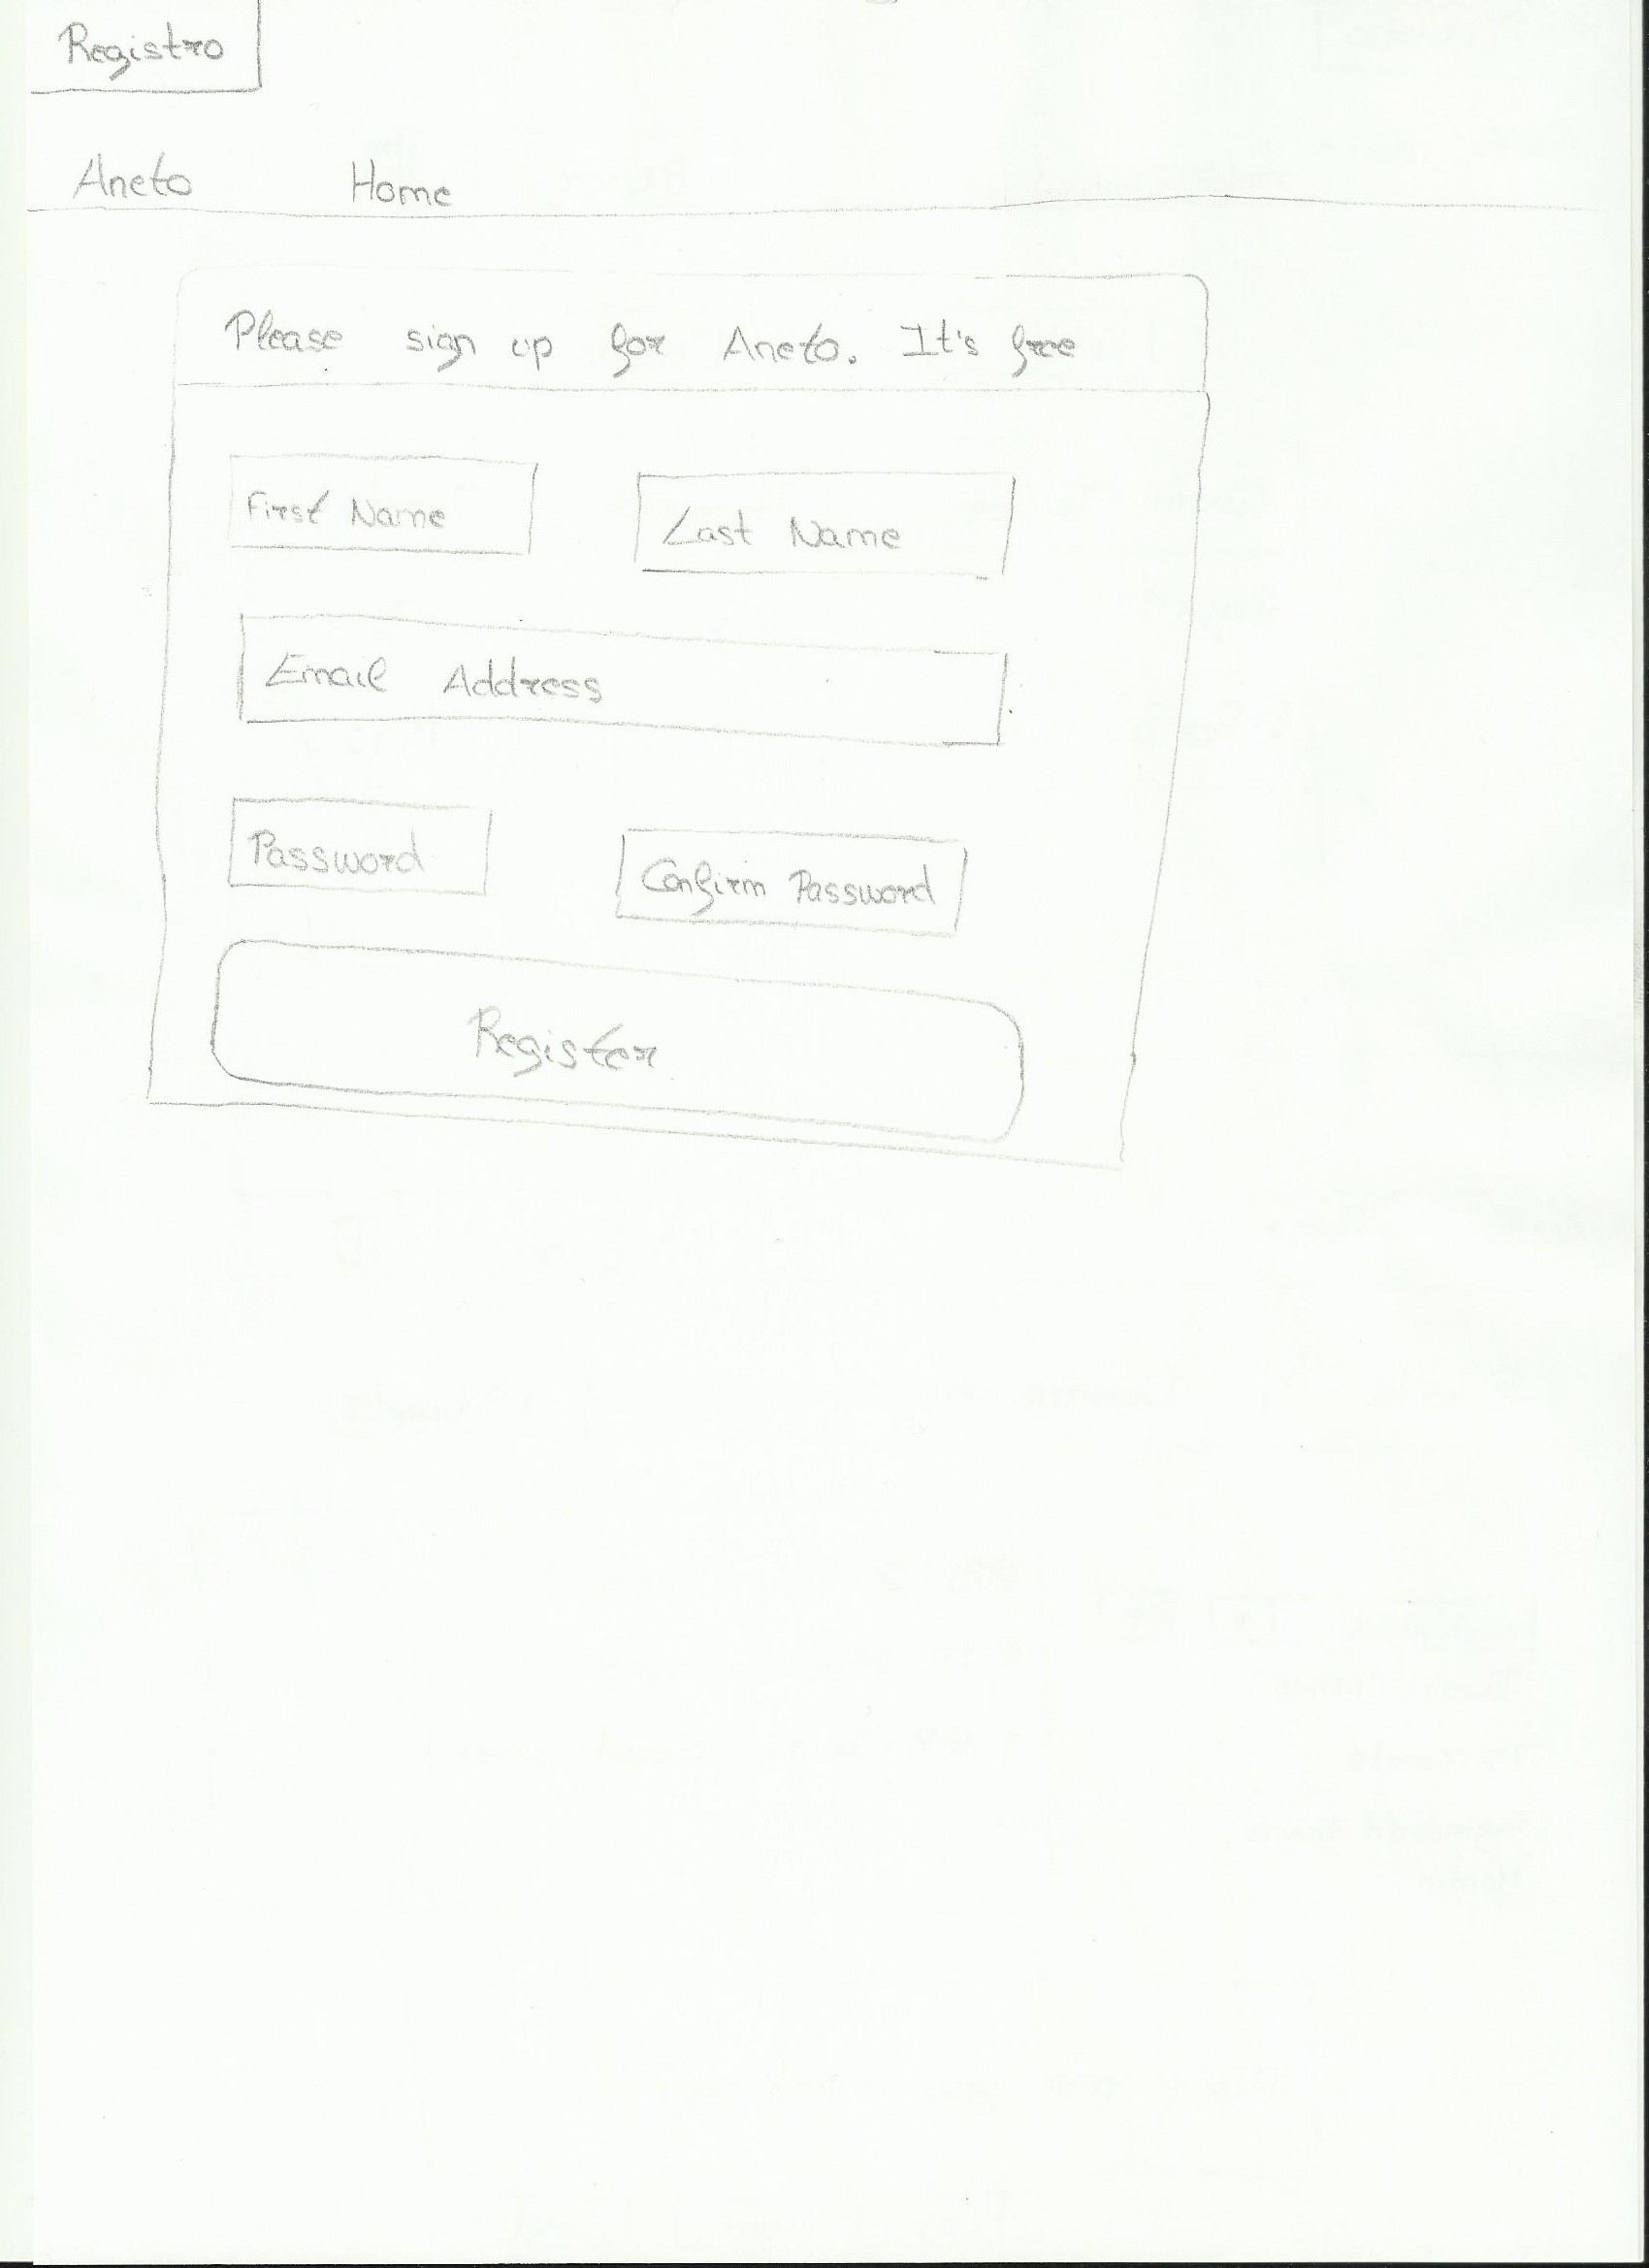 Registro
Aneto Home
Please sign up for Aneto. It's free
First Name Last Name
Email Address
Password Confirm Password
Register